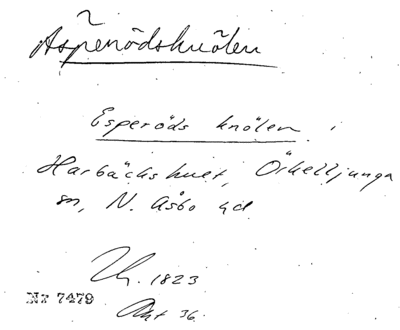 Aspenödsknölen
Esperöds knölen i
Harbäckshult, Örkelljunga
sn, N. Åsbo hd
Uh. 1823
Nr 7479
Akt 36.